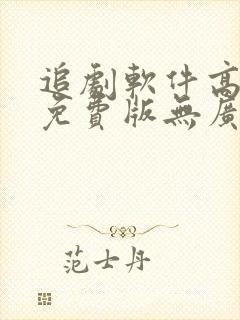 追劇軟件高
免費版無廣
范士丹